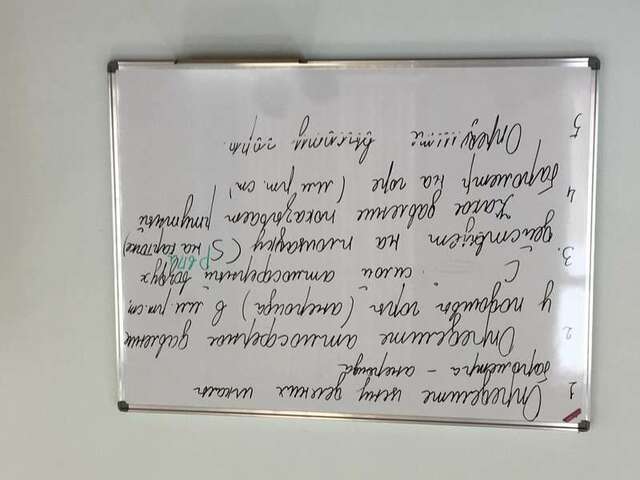 1 Определите цену деления шкалы
барометра - анероида
2 Определите атмосферное давление
у подошвы горы (анероида) в мм.рт.ст.
3. С силой атмосферный воздух
р в Па
действует на площадку (S на карточке)
4 Какое давление показывает ртутный
барометр на горе (мм рт. ст
5 Определите высоту горы.